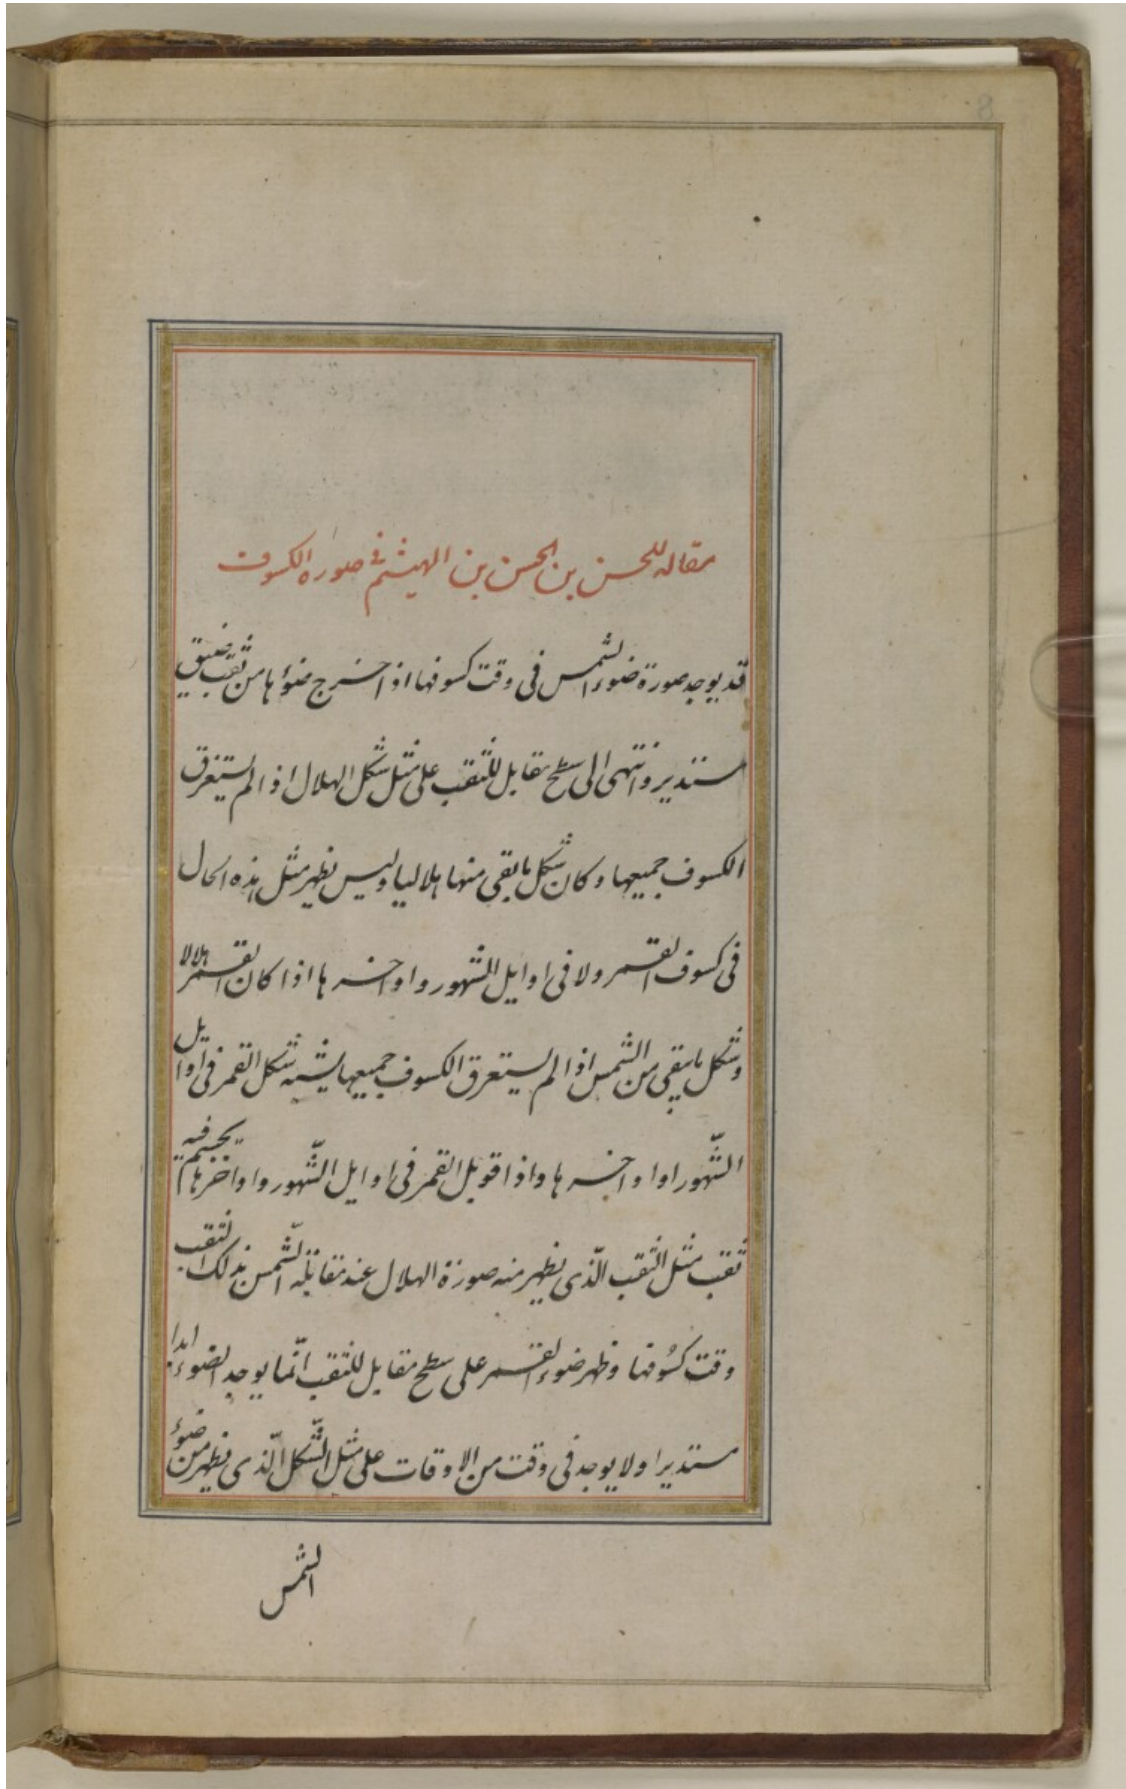 8
مقاله للحسن بن الحسن بن الهيثم في صورة الكسوف
قد يوجد صورة ضوء الشمس فى وقت كسوفها اذا خرج ضوؤها من ثقب ضيق
مستدير وانتهى الى سطح مقابل للثقب على مثل شكل الهلال اذا لم يستغرق
الكسوف جميعها وكان شكل ما بقى منها هلاليا وليس يظهر مثل هذه الحال
فى كسوف القمر ولا فى اوايل الشهور واواخرها اذا كان القمر هلالا
وشكل ما يبقى من الشمس اذا لم يستغرق الكسوف جميعها يشبه شكل القمر فى اوايل
الشّهور او اواخرها واذا قوبل القمر فى اوايل الشّهور واواخرها بجسم فيه
ثقب مثل الثقب الّذى يظهر منه صورة الهلال عند مقابلة الشّمس بذلك الثقب
وقت كسُوفها وظهر ضوء القمر على سطح مقابل للثقب انّما يوجد الضوء ابدا
مستديرا ولا يوجد فى وقت من الاوقات على مثل الشّكل الّذى يظهر من ضوء
الشمس